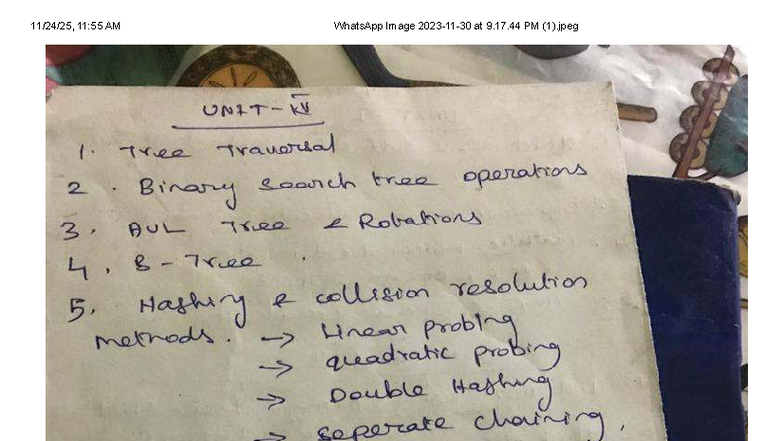 11/24/25, 11:55 AM WhatsApp Image 2023-11-30 at 9.17.44 PM (1).jpeg
UNIT-
1. Tree Traversal
2. Binary search tree operations
3. AVL Tree & Rotations
4. B-Tree.
5. Hashing & collision resolution
methods. → Linear probing
→ quadratic probing
→ Double Hashing
→ seperate chaining.